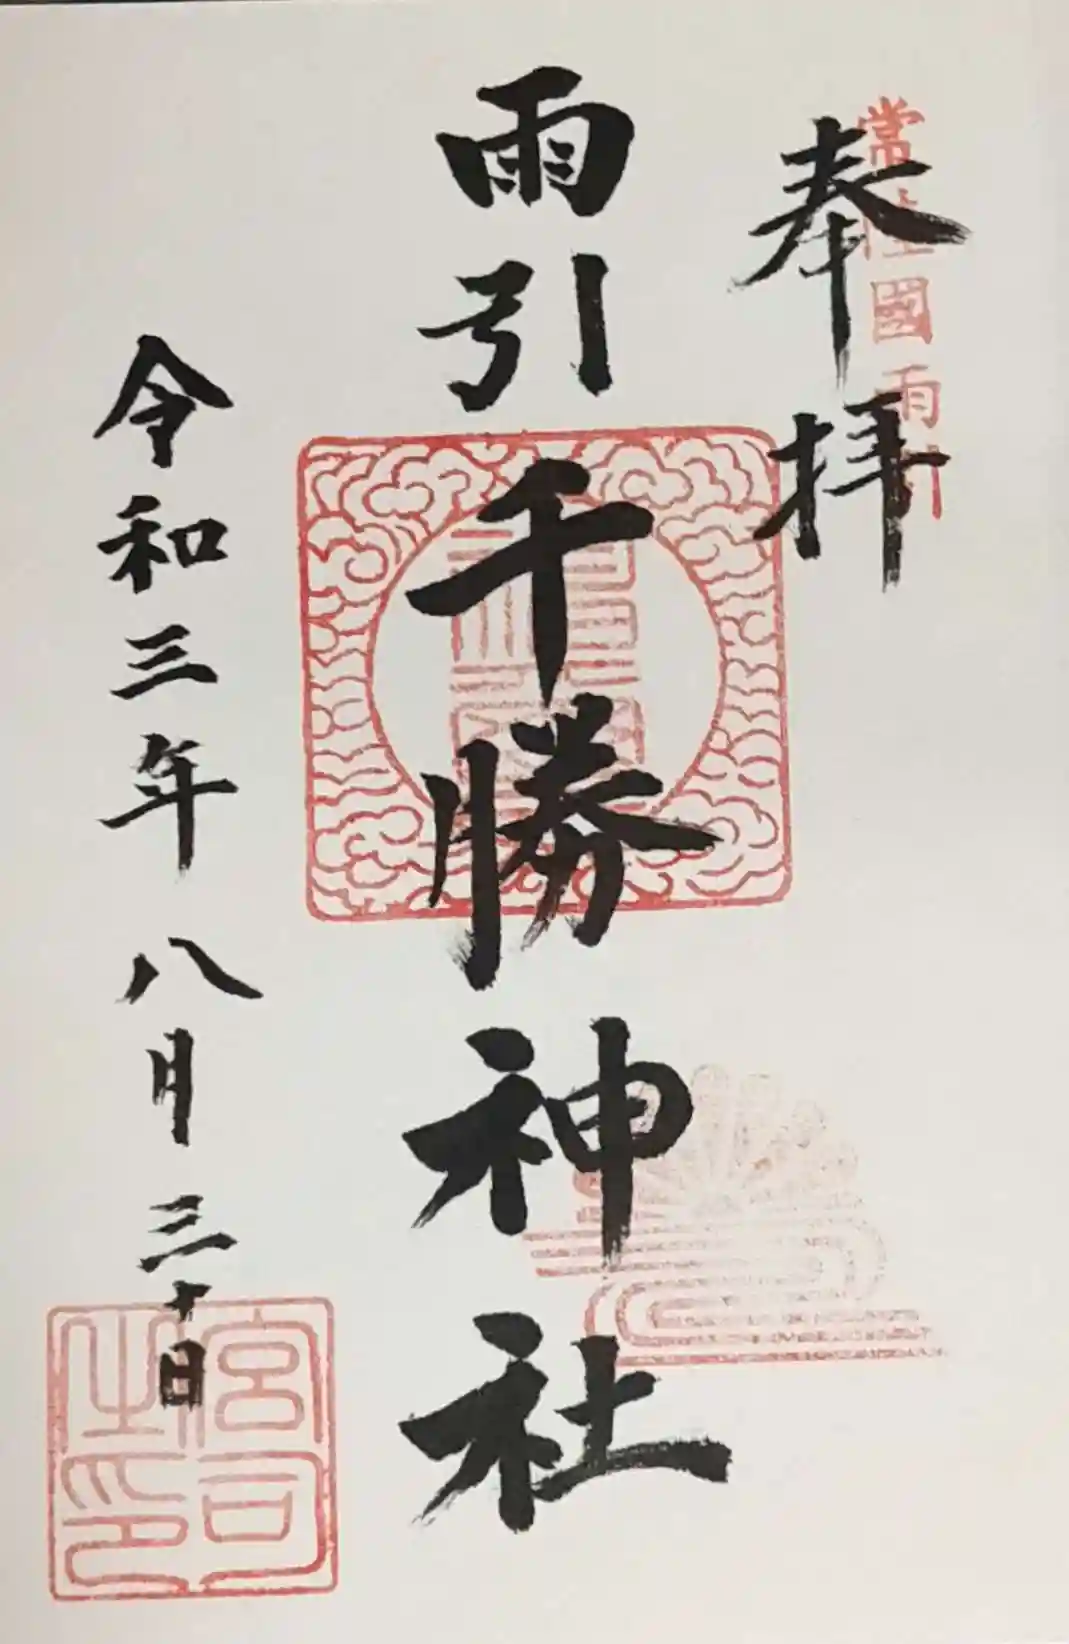 常陸國雨引
奉拝
雨引千勝神社
令和三年八月三十日
宮司之印